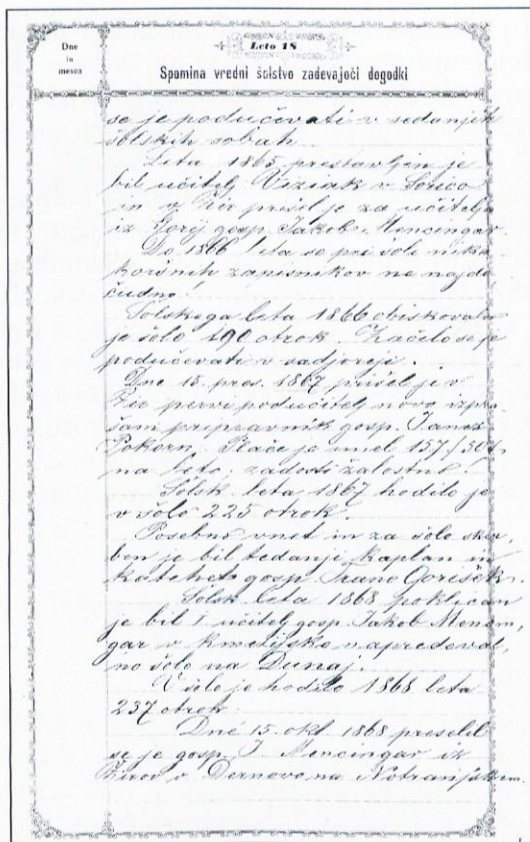 Dne
in
mesca
Leto 18
Spomina vredni šolstvo zadevajoči dogodki
se je podučevati v sedanjih
šolskih sobah.
Leta 1865 prestavljen je
bil učitelj Viziak v Sorico
in v Žir prišel je za učitelja
iz Gorij gosp. Jakob Mencingar.
Do 1866 leta se pri šoli nika
koršnih zapisnikov ne najde
čudno!
Šolskega leta 1866 obiskovalo
je šolo 190 otrok. Začelo se je
podučevati v sadjoreji.
Dne 15. pres. 1867 prišel je v
Žir pervi podučitelj novo izpra
šam pripravnik gosp. Janez
Pokorn. Plače je imel 157 f 50
na leto; zadosti žalostno!
Šolsk. leta 1867 hodilo je
v šolo 225 otrok.
Posebno vnet in za šolo sker,
ben je bil tedanji kaplan in
katehet gosp. Franc Gorišek.
Šolsk leta 1868 poklican
je bil I. učitelj gosp. Jakob Mencin,
gar v kmetijsko napredoval,
no šolo na Dunaj.
V šolo je hodilo 1868 leta
237 otrok.
Dné 15. okt. 1868 preselil
se je gosp. J. Mencingar iz
Žirov v Dernovo na Notranjskem.